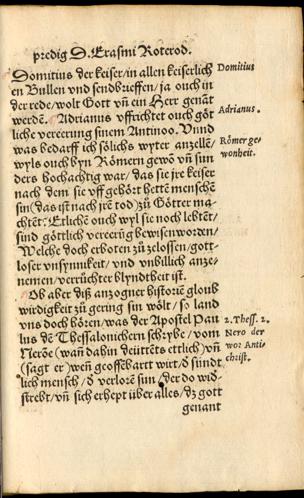 predig D. Erasmi Roterod.
Domitius der keiser/in allen keiserlich
en Bullen vnd sendbrieffen/ja ouch in
der rede/wolt Gott vñ ein Herr genãt
werdẽ. Adrianus vffrichtet ouch göt
liche vereerung sinem Antinoo. Vnnd
was bedarff ich sölichs wyter anzellẽ/
wyls ouch byn Römern gewõ vñ sun
ders hochachtig war/das sie jre keiser
nach dem sie vff gehört hettẽ menschẽ
sin(das ist nach jrẽ tod)zů Götter ma-
chtẽt: Etlichẽ ouch wyl sie noch lebtẽt/
sind göttlich vereerũg bewisen wordẽ/
Welche doch erboten zů zelossen/gott-
loser vnsynnikeit/vnd vnbillich anze-
nemen/verrůchter blyndtheit ist.
Ob aber diß anzogner historiẽ gloub
wirdigkeit zů gering sin wölt/so land
vns doch hören/was der Apostel Pau
lus dẽ Thessalonichern schrybe/vom
Nerõe(wañ dahin deüttẽts ettlich)vñ
(sagt er)weñ geoffẽbart wirt/d sündt
lich mensch/d verlorẽ sun/der do wid-
strebt/vñ sich erhept über alles/dz gott
genant
Domitius
Adrianus.
Römer ge-
wonheit.
2. Thess. 2.
Nero der
wor Anti-
christ.